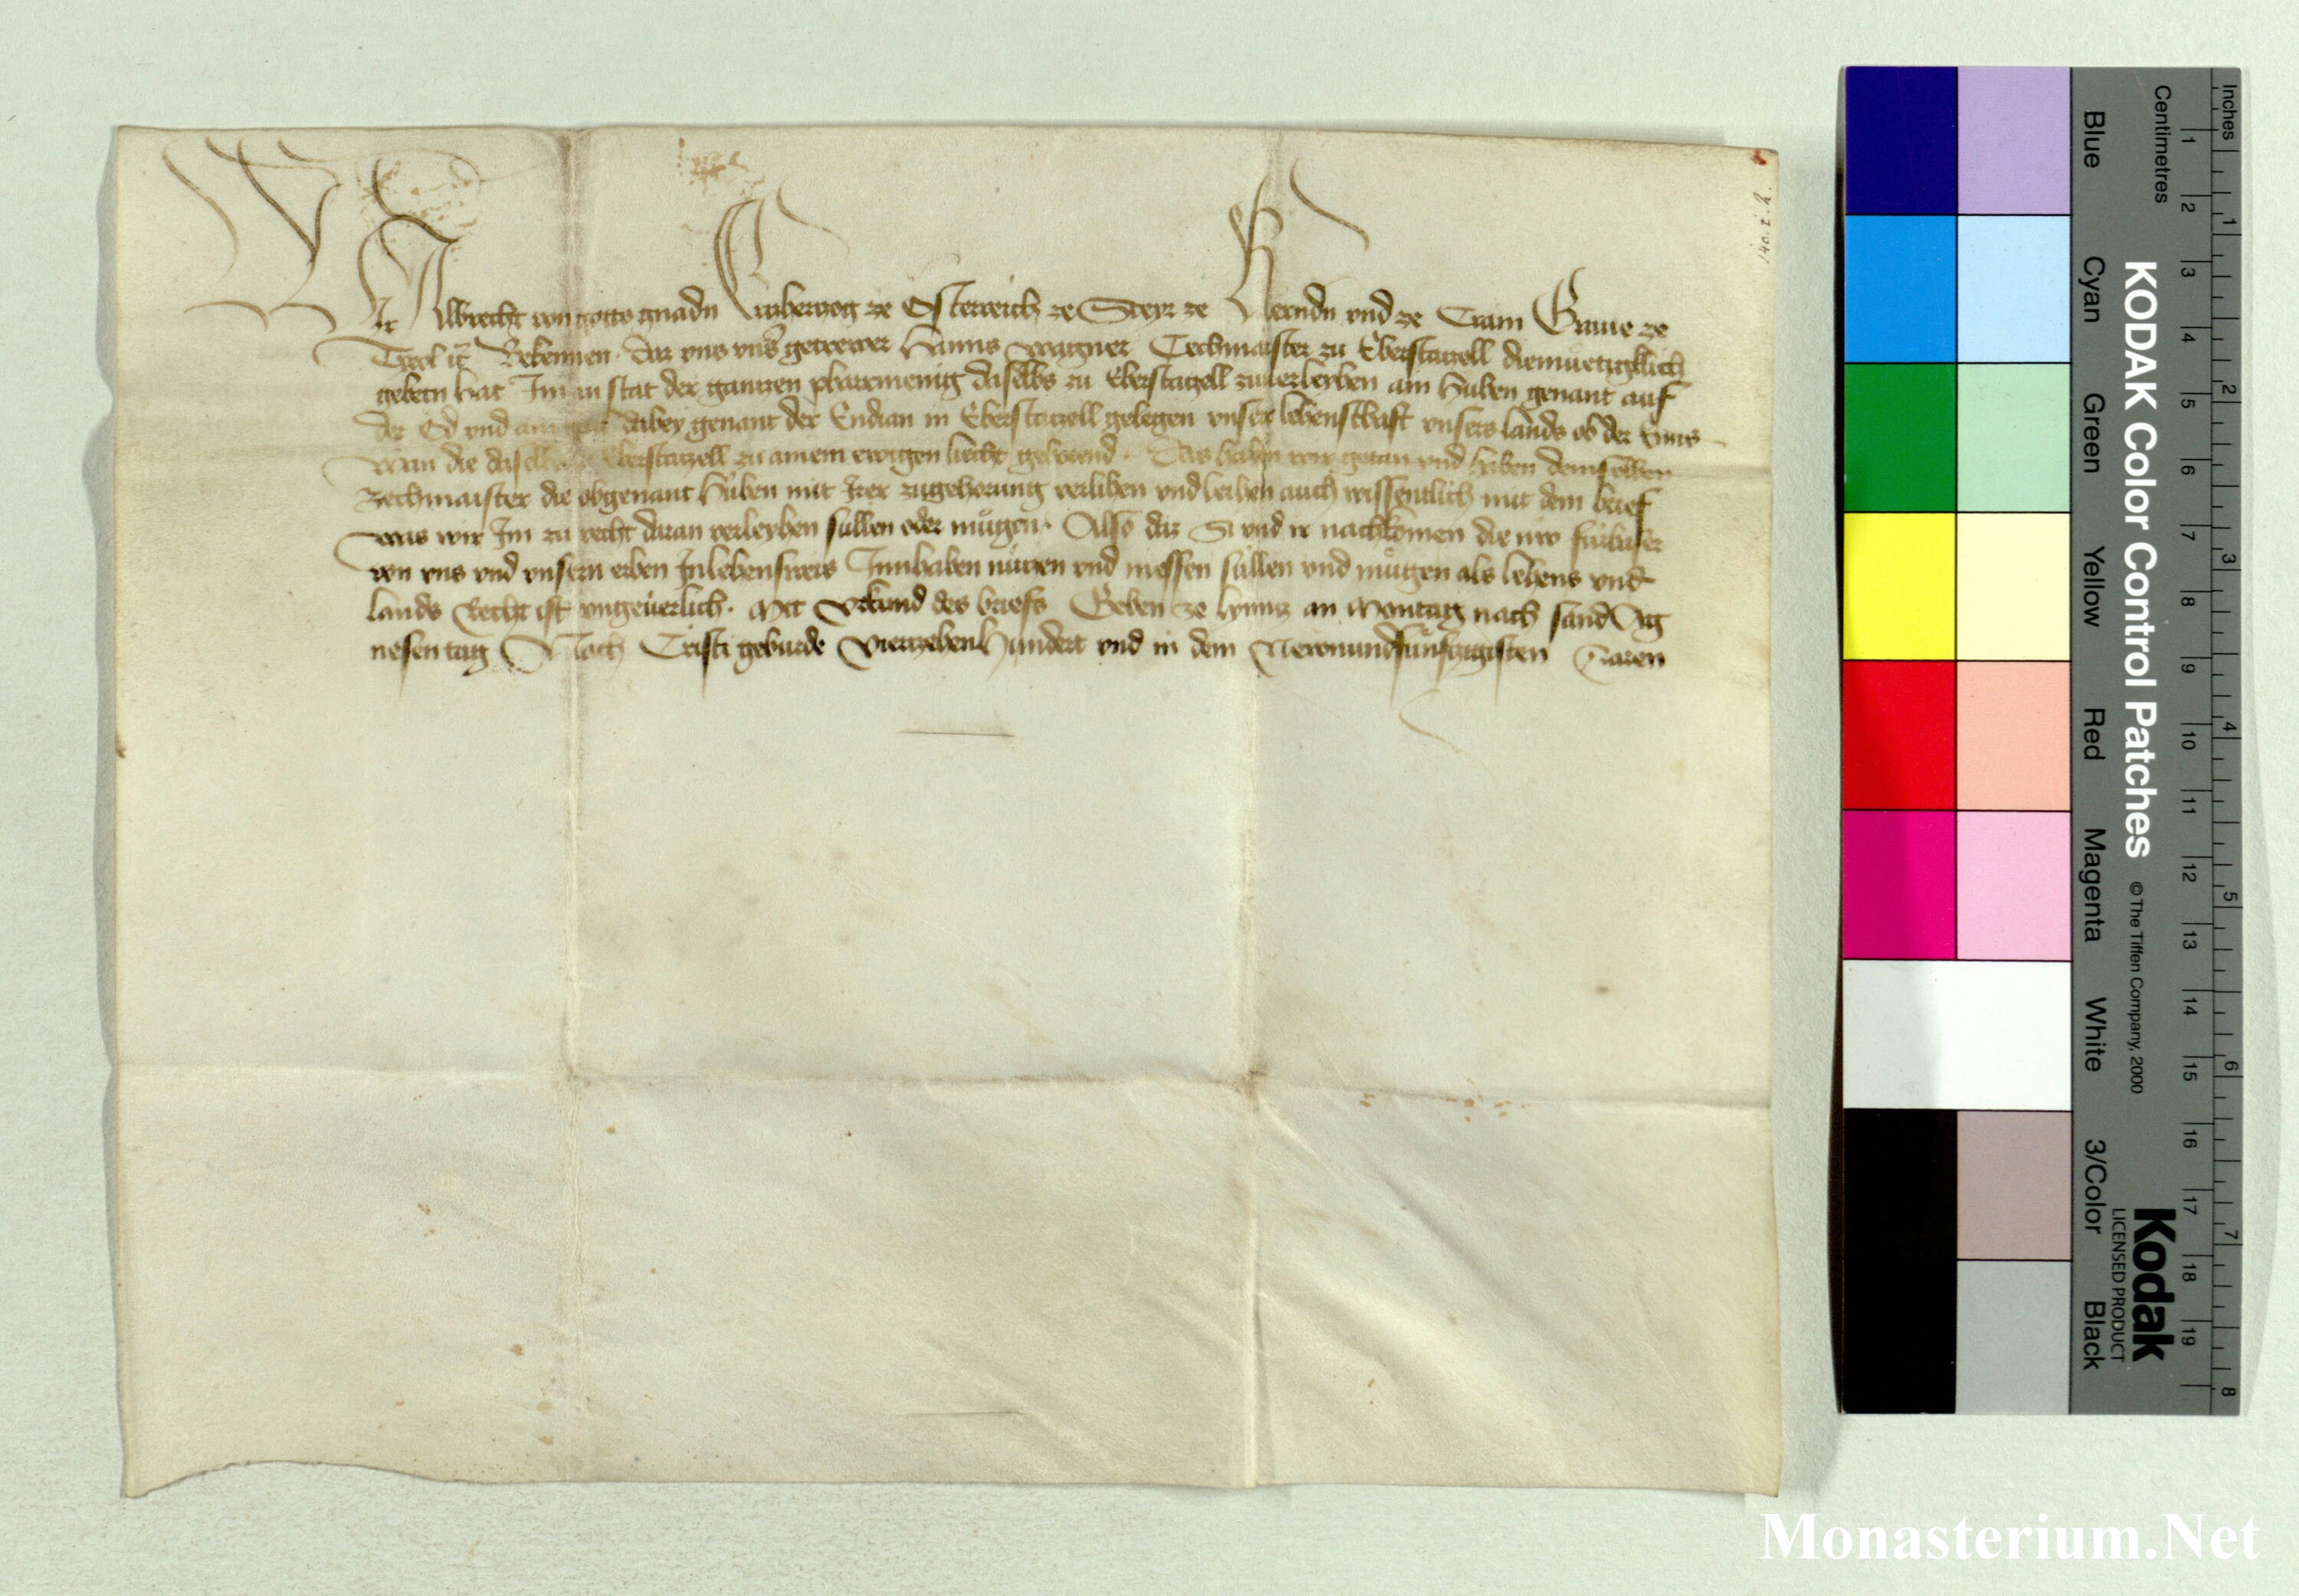 Wir Albrecht von gottes gnadn Ertzherzog ze Österreich ze Steyr ze Kernndn vnd ze Crain Graue ze
Tyrol ꝛc̃ Bekennen. daz vns vnser getrewer Hanns Wagner Zechmaister zu Eberstatzell diemuetigklich
gebetn hat Im an stat der gantzen pharrmenig daselbs zu Eberstatzell zuuerleyhen ain Huben genant auf
der Öd vnd ain dabey genant der Endian in Eberstatzell gelegen vnser lehenschaft vnsers lands ob der Enns
wan die daselbs Eberstatzell zu ainem ewigen liecht gehorend. Das haben wir getan vnd haben demselben
Zechmaister die obgenant Huben mit Irer zugehorung verlihen vnd leihen auch wissentlich mit dem brief
was wir Im zu recht daran verleyhen sullen oder mugen. Also daz Si vnd ir nachkomen die nw furbaser
von vns vnd vnsern erben In lehensweis Innhaben nutzen vnd niessen sullen vnd mugen als lehens vnd
lands Recht ist vngeuerlich. Mit Vrkund des briefs Geben ze Lynntz an Montag nach sand Ag
nesen tag Nach Cristi geburde Viertzehenhundert vnd in dem Newnundfunfzigisten Jaren
KODAK Color Control Patches
© The Tiffen Company, 2000
Kodak
LICENSED PRODUCT
Blue Cyan Green Yellow Red Magenta White 3/Color Black
Centimetres 1 2 3 4 5 6 7 8 9 10 11 12 13 14 15 16 17 18 19
Inches 1 2 3 4 5 6 7 8
Monasterium.Net